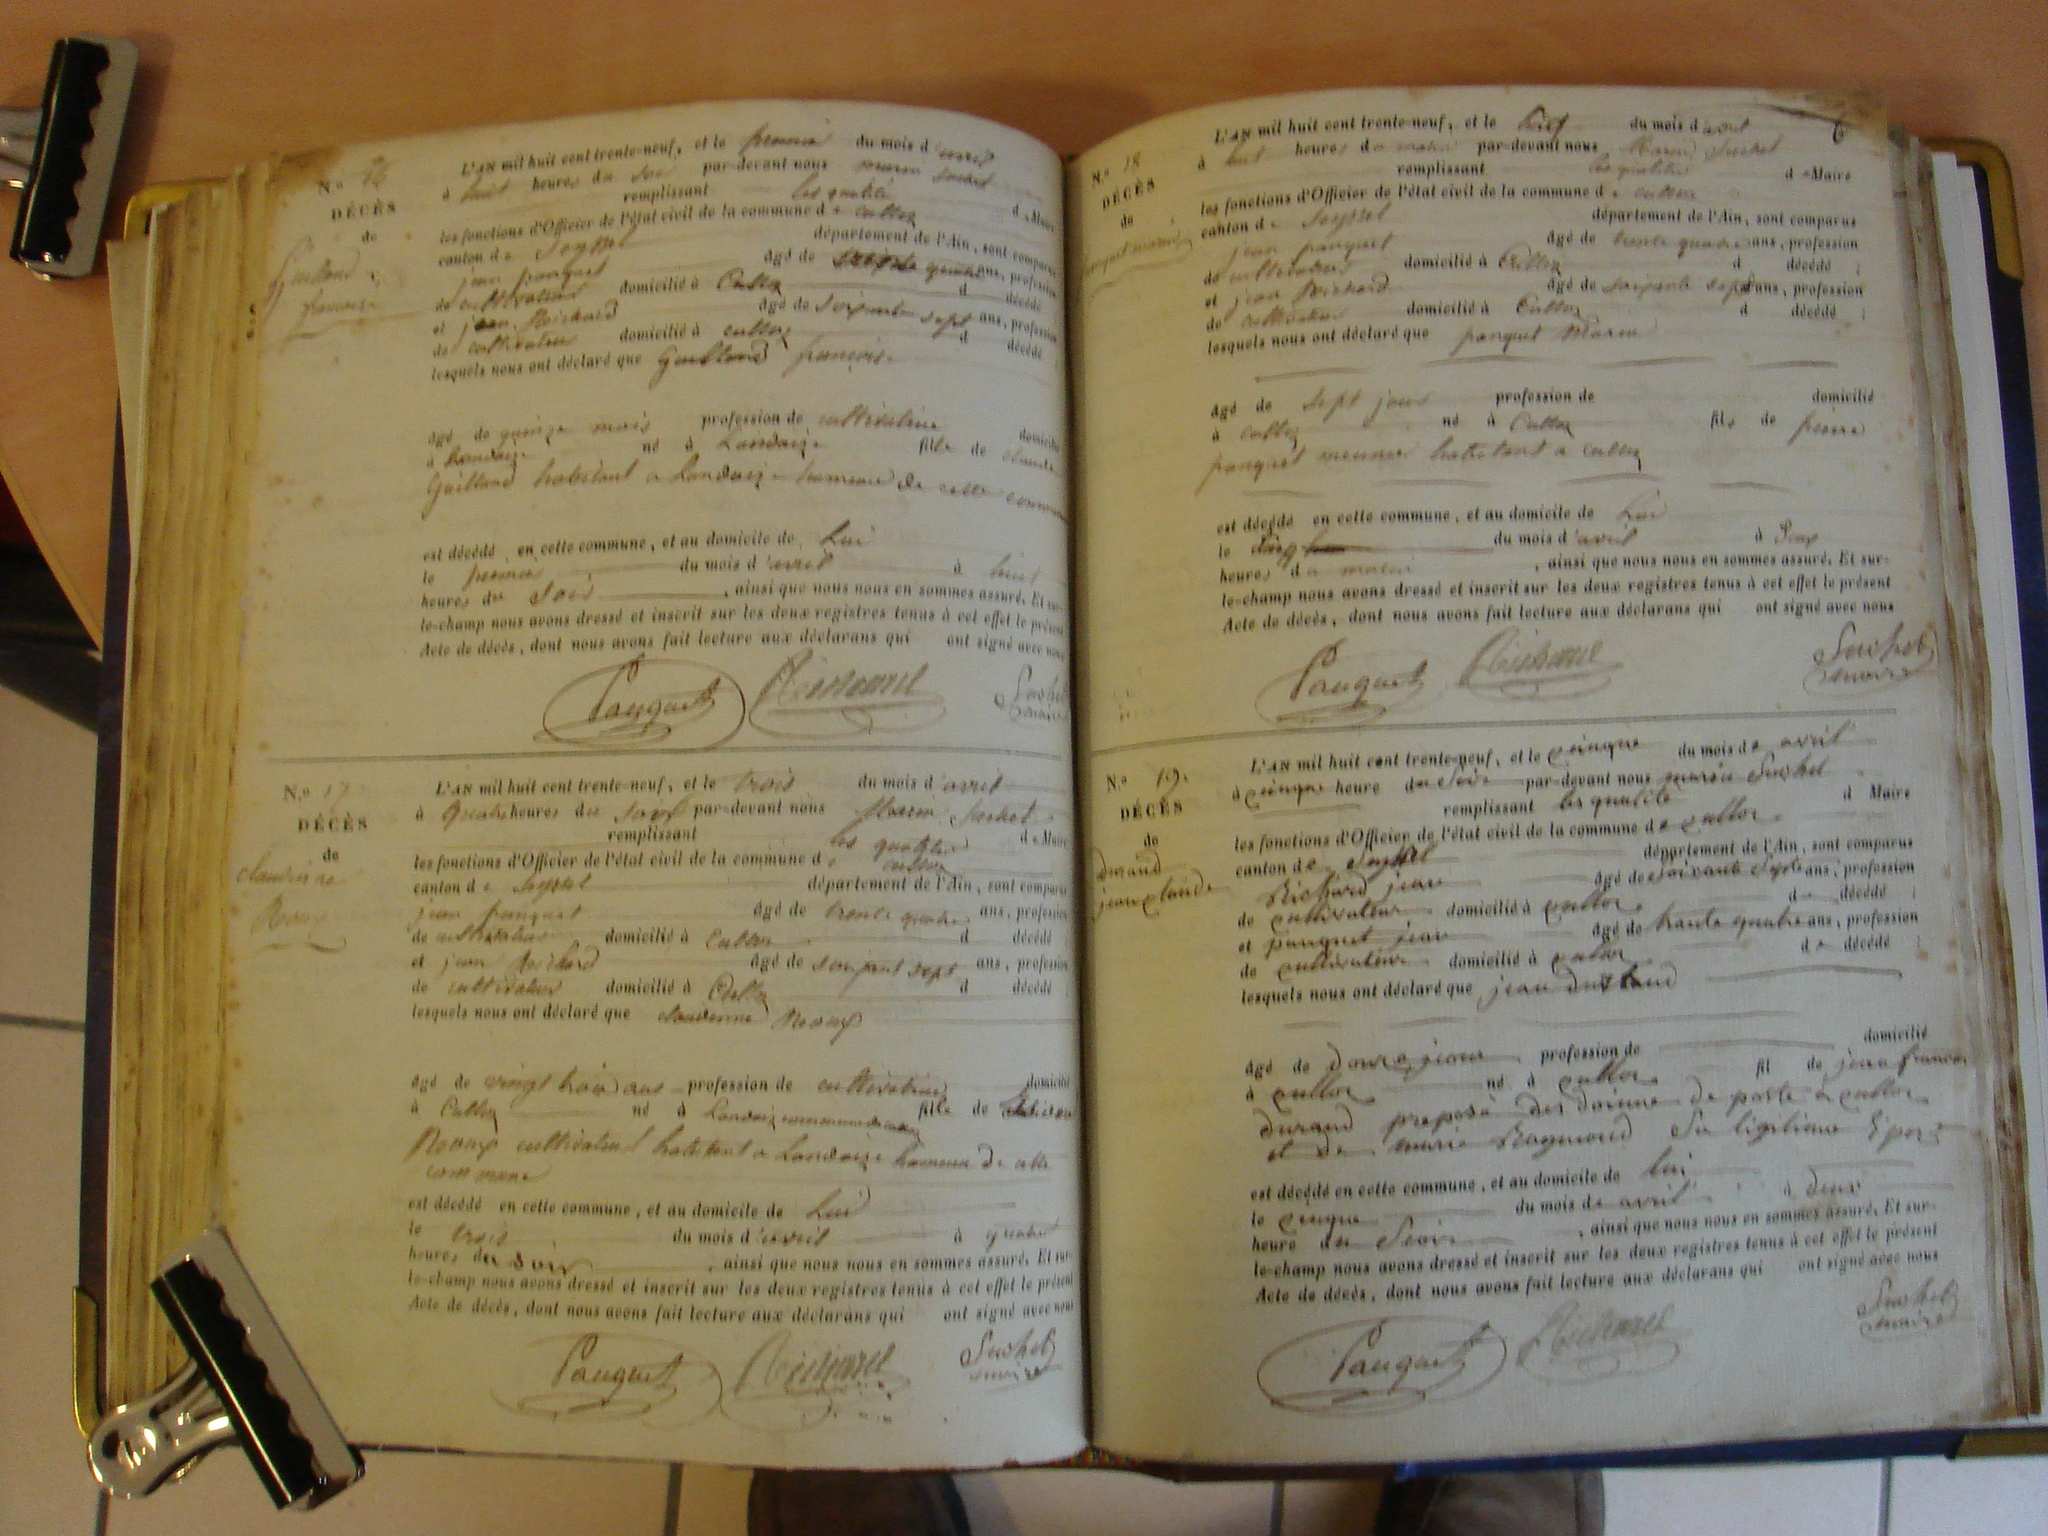 N.o 16
DÉCÈS
de
Guilland
françois
L'AN mil huit cent trente-neuf, et le premier du mois d'avril
à huit heures du soir par-devant nous marin Suchet
remplissant les qualité d Maire
les fonctions d'Officier de l'état civil de la commune de culloz
canton de Seyssel département de l'Ain, sont comparus
jean panquet âgé de trente quatre ans, profession
de cultivateur domicilié à Culloz d décédé ;
et jean Richard âgé de soixante sept ans, profession
de cultivateur domicilié à culloz d décédé ;
lesquels nous ont déclaré que Guilland françois
âgé de quinze mois profession de cultivatrice domicilié
à Landaize né à Landaize fils de claude
Guilland habitant a Landaize hameau de cette commune
est décédé en cette commune, et au domicile de Lui
le premier du mois d'avril à huit
heures du Soir , ainsi que nous nous en sommes assuré. Et sur-
le-champ nous avons dressé et inscrit sur les deux registres tenus à cet effet le présent
Acte de décès, dont nous avons fait lecture aux déclarans qui ont signé avec nous
Panquet Richard Suchet
maire
N.o 17
DÉCÈS
de
claudine
L'AN mil huit cent trente-neuf, et le trois du mois d'avril
à Quatre heures du soir par-devant nous Marin Suchet
remplissant les qualité d Maire
les fonctions d'Officier de l'état civil de la commune d culloz
canton de Seyssel département de l'Ain, sont comparus
jean panquet âgé de trente quatre ans, profession
de cultivateur domicilié à Culloz d décédé ;
et jean Richard âgé de soixante sept ans, profession
de cultivateur domicilié à Culloz d décédé ;
lesquels nous ont déclaré que
âgé de vingt trois ans profession de cultivatrice domicilié
à Culloz né à Landaize fille de
cultivateur habitant a Landaize hameau de cette
commune
est décédé en cette commune, et au domicile de Lui
le trois du mois d'avril à quatre
heures du soir , ainsi que nous nous en sommes assuré. Et sur-
le-champ nous avons dressé et inscrit sur les deux registres tenus à cet effet le présent
Acte de décès, dont nous avons fait lecture aux déclarans qui ont signé avec nous
Panquet Richard Suchet
maire
6
N.o 18
DÉCÈS
de
panquet marie
L'AN mil huit cent trente-neuf, et le du mois d'avril
à huit heures du matin par-devant nous Marin Suchet
remplissant les qualité d Maire
les fonctions d'Officier de l'état civil de la commune de culloz
canton de Seyssel département de l'Ain, sont comparus
jean panquet âgé de trente quatre ans, profession
de cultivateur domicilié à Culloz d décédé ;
et jean Richard âgé de soixante sept ans, profession
de cultivateur domicilié à Culloz d décédé ;
lesquels nous ont déclaré que panquet Marie
âgé de sept jour profession de domicilié
à culloz né à Culloz fils de pierre
panquet meunier habitant a culloz
est décédé en cette commune, et au domicile de Lui
le du mois d'avril à
heures du matin , ainsi que nous nous en sommes assuré. Et sur-
le-champ nous avons dressé et inscrit sur les deux registres tenus à cet effet le présent
Acte de décès, dont nous avons fait lecture aux déclarans qui ont signé avec nous
Panquet Richard Suchet
maire
N.o 19.
DÉCÈS
de
durand
jean claude
L'AN mil huit cent trente-neuf, et le cinque du mois de avril
à cinque heure du Soir par-devant nous marin Suchet
remplissant les qualité d Maire
les fonctions d'Officier de l'état civil de la commune de culloz
canton de Seyssel département de l'Ain, sont comparus
Richard jean âgé de soixante Sept ans, profession
de cultivateur domicilié à culloz d décédé ;
et panquet jean âgé de trante quatre ans, profession
de cultivateur domicilié à culloz d décédé ;
lesquels nous ont déclaré que jean durand
âgé de jour profession de domicilié
à culloz né à culloz fil de jean françois
durand preposé des douane de poste à culloz
et de marie Raymond Sa ligitime
est décédé en cette commune, et au domicile de lui
le cinque du mois de avril à deux
heure du Soir , ainsi que nous nous en sommes assuré. Et sur-
le-champ nous avons dressé et inscrit sur les deux registres tenus à cet effet le présent
Acte de décès, dont nous avons fait lecture aux déclarans qui ont signé avec nous
Panquet Richard Suchet
maire